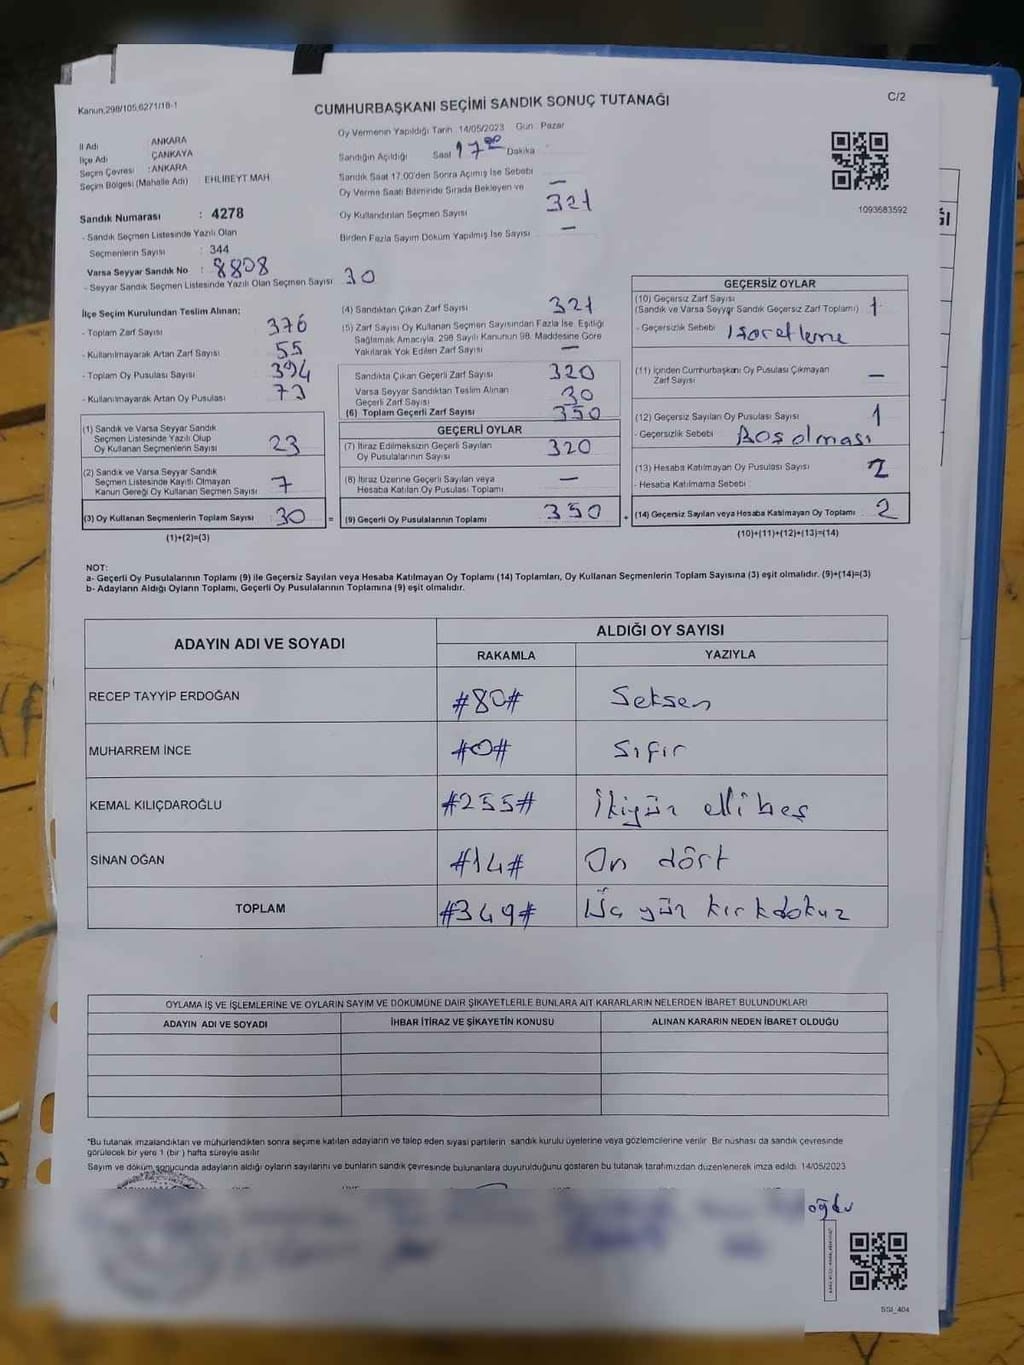 Kanun,298/105,6271/18-1
C/2
CUMHURBAŞKANI SEÇİMİ SANDIK SONUÇ TUTANAĞI
İl Adı ANKARA
İlçe Adı ÇANKAYA
Seçim Çevresi : ANKARA
Seçim Bölgesi (Mahalle Adı) EHLIBEYT MAH
Sandık Numarası : 4278
- Sandık Seçmen Listesinde Yazılı Olan
Seçmenlerin Sayısı : 344
Varsa Seyyar Sandık No : 8808
- Seyyar Sandık Seçmen Listesinde Yazılı Olan Seçmen Sayısı 30
Oy Vermenin Yapıldığı Tarih 14/05/2023 Gün : Pazar
Sandığın Açıldığı Saat 17 00 Dakika
Sandık Saat 17.00'den Sonra Açılmış İse Sebebi —
Oy Verme Saati Bitiminde Sırada Bekleyen ve
Oy Kullandırılan Seçmen Sayısı 321
Birden Fazla Sayım Döküm Yapılmış İse Sayısı —
1093683592
İlçe Seçim Kurulundan Teslim Alınan;
- Toplam Zarf Sayısı 376
- Kullanılmayarak Artan Zarf Sayısı 55
- Toplam Oy Pusulası Sayısı 394
- Kullanılmayarak Artan Oy Pusulası 73
(1) Sandık ve Varsa Seyyar Sandık
Seçmen Listesinde Yazılı Olup
Oy Kullanan Seçmenlerin Sayısı 23
(2) Sandık ve Varsa Seyyar Sandık
Seçmen Listesinde Kayıtlı Olmayan
Kanun Gereği Oy Kullanan Seçmen Sayısı 7
(3) Oy Kullanan Seçmenlerin Toplam Sayısı 30 =
(1)+(2)=(3)
(4) Sandıktan Çıkan Zarf Sayısı 321
(5) Zarf Sayısı Oy Kullanan Seçmen Sayısından Fazla İse, Eşitliği
Sağlamak Amacıyla, 298 Sayılı Kanunun 98. Maddesine Göre
Yakılarak Yok Edilen Zarf Sayısı —
Sandıkta Çıkan Geçerli Zarf Sayısı 320
Varsa Seyyar Sandıktan Teslim Alınan
Geçerli Zarf Sayısı 30
(6) Toplam Geçerli Zarf Sayısı 350
GEÇERLİ OYLAR
(7) İtiraz Edilmeksizin Geçerli Sayılan
Oy Pusulalarının Sayısı 320
(8) İtiraz Üzerine Geçerli Sayılan veya
Hesaba Katılan Oy Pusulası Toplamı —
(9) Geçerli Oy Pusulalarının Toplamı 350 +
GEÇERSİZ OYLAR
(10) Geçersiz Zarf Sayısı
(Sandık ve Varsa Seyyar Sandık Geçersiz Zarf Toplamı) 1
- Geçersizlik Sebebi İşaretleme
(11) İçinden Cumhurbaşkanı Oy Pusulası Çıkmayan
Zarf Sayısı —
(12) Geçersiz Sayılan Oy Pusulası Sayısı 1
- Geçersizlik Sebebi Boş olması
(13) Hesaba Katılmayan Oy Pusulası Sayısı 2
- Hesaba Katılmama Sebebi
(14) Geçersiz Sayılan veya Hesaba Katılmayan Oy Toplamı 2
(10)+(11)+(12)+(13)=(14)
NOT:
a- Geçerli Oy Pusulalarının Toplamı (9) ile Geçersiz Sayılan veya Hesaba Katılmayan Oy Toplamı (14) Toplamları, Oy Kullanan Seçmenlerin Toplam Sayısına (3) eşit olmalıdır. (9)+(14)=(3)
b- Adayların Aldığı Oyların Toplamı, Geçerli Oy Pusulalarının Toplamına (9) eşit olmalıdır.
ADAYIN ADI VE SOYADI ALDIĞI OY SAYISI
RAKAMLA YAZIYLA
RECEP TAYYİP ERDOĞAN #80# Seksen
MUHARREM İNCE #0# Sıfır
KEMAL KILIÇDAROĞLU #255# İkiyüz elli beş
SİNAN OĞAN #14# On dört
TOPLAM #349# Üç yüz kırkdokuz
OYLAMA İŞ VE İŞLEMLERİNE VE OYLARIN SAYIM VE DÖKÜMÜNE DAİR ŞİKAYETLERLE BUNLARA AİT KARARLARIN NELERDEN İBARET BULUNDUKLARI
ADAYIN ADI VE SOYADI İHBAR İTİRAZ VE ŞİKAYETİN KONUSU ALINAN KARARIN NEDEN İBARET OLDUĞU
*Bu tutanak imzalandıktan ve mühürlendikten sonra seçime katılan adayların ve talep eden siyasi partilerin sandık kurulu üyelerine veya gözlemcilerine verilir. Bir nüshası da sandık çevresinde
görülecek bir yere 1 (bir) hafta süreyle asılır
Sayım ve döküm sonucunda adayların aldığı oyların sayılarını ve bunların sandık çevresinde bulunanlara duyurulduğunu gösteren bu tutanak tarafımızdan düzenlenerek imza edildi. 14/05/2023
oğlu
SSI_404